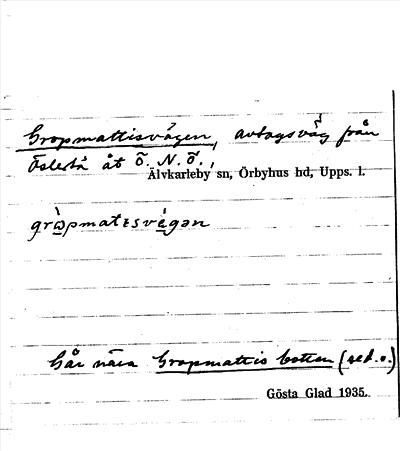 Gropmattisvägen, avtagsväg från
åt Ö. N. Ö.,
Älvkarleby sn, Örbyhus hd, Upps. l.
Går nära Gropmattis botten (sed. o.)
Gösta Glad 1935.